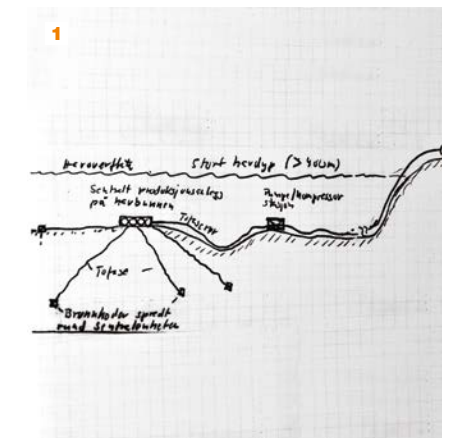 1
Havoverflate
Stort havdyp (> 400m)
Sentralt produksjonsanlegg
på havbunnen
Pumpe/kompressor
stasjon
Tofaserør
Tofase
Brønnhoder spredt
rundt sentralenheten